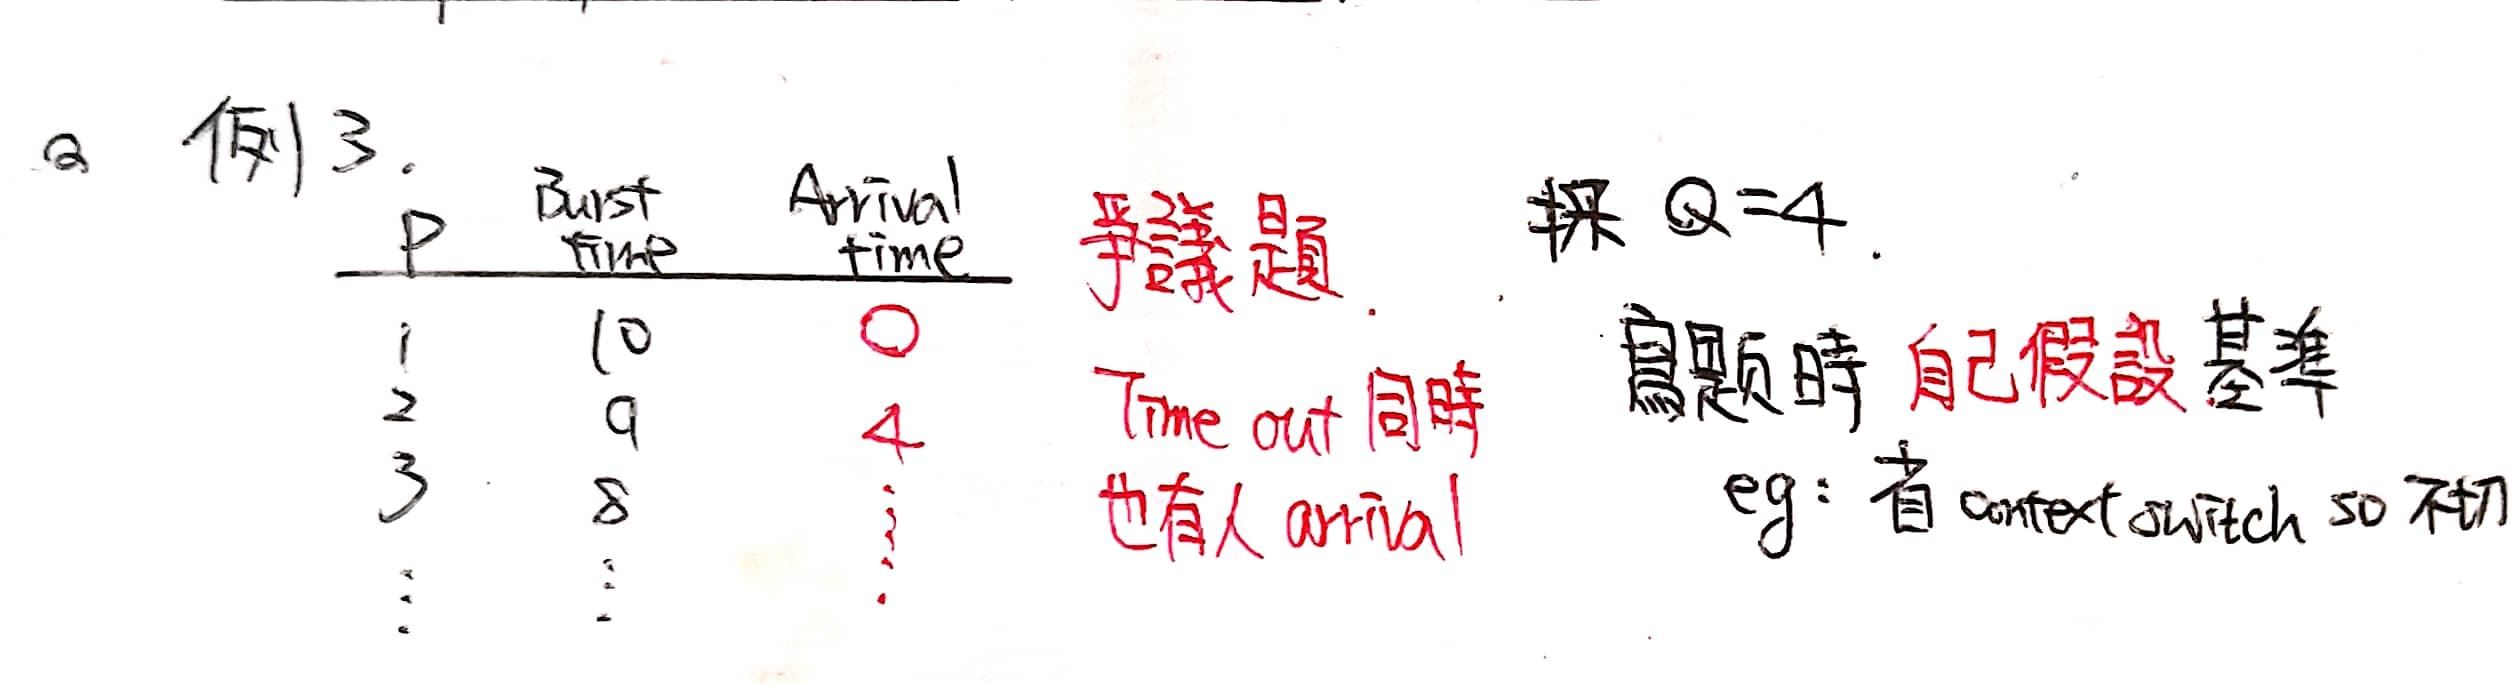 例3.
P Burst time Arrival time
1 10 0
2 9 4
3 8
爭議題.
Time out 同時
也有人 arrival
採 Q=4.
寫題時 自己假設基準
eg: 省 context switch so 不切